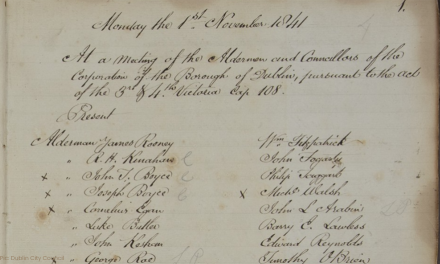 1.
Monday the 1st November 1841
At a Meeting of the Aldermen and Councillors of the
Corporation of the Borough of Dublin, pursuant to the act
of the 3rd & 4th Victoria Cap 108.
Present
Alderman James Rooney Wm Fitzpatrick
" R. H. Kinahan John Fogarty
x " John T. Boyce Philip
x " Joseph Boyce x Michl Walsh
x " Cornelius Egan John L Arabin
" Luke Butler Barry E. Lawless
" John Keshan Edward Reynolds
x " George Roe Timothy O'Brien
Dublin City Council